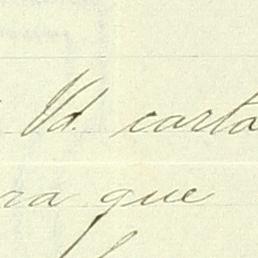 Vd. carta
ra que